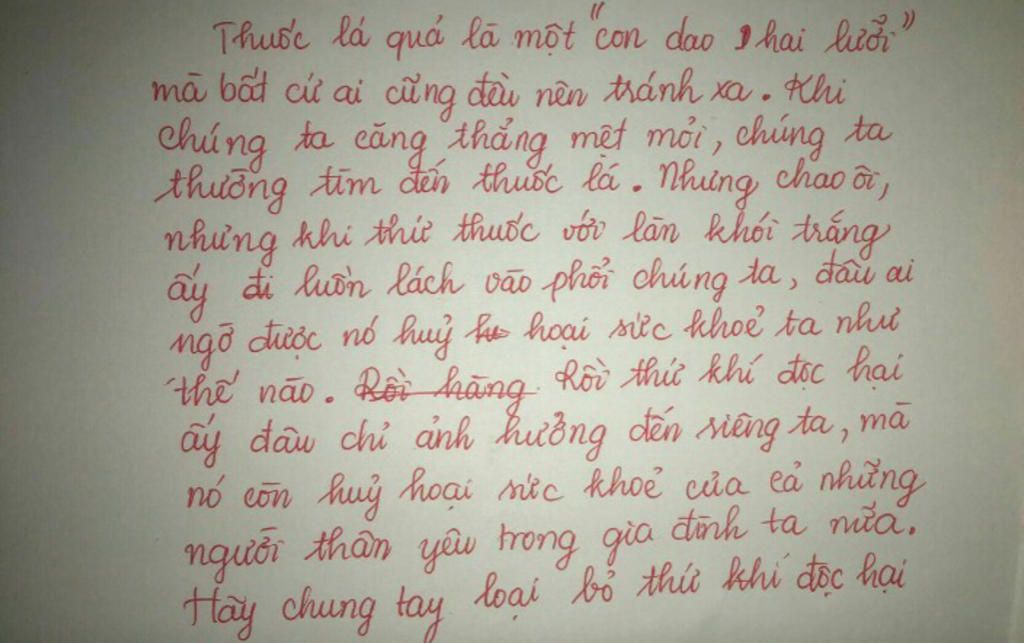 Thuốc lá quả là một "con dao hai lưỡi"
mà bất cứ ai cũng đều nên tránh xa. Khi
chúng ta căng thẳng mệt mỏi, chúng ta
thường tìm đến thuốc lá. Nhưng chao ôi,
nhưng khi thứ thuốc với làn khói trắng
ấy đi luồn lách vào phổi chúng ta, đâu ai
ngờ được nó huỷ hoại sức khoẻ ta như
thế nào. Rồi hàng Rồi thứ khí độc hại
ấy đâu chỉ ảnh hưởng đến riêng ta, mà
nó còn huỷ hoại sức khoẻ của cả những
người thân yêu trong gia đình ta nữa.
Hãy chung tay loại bỏ thứ khí độc hại